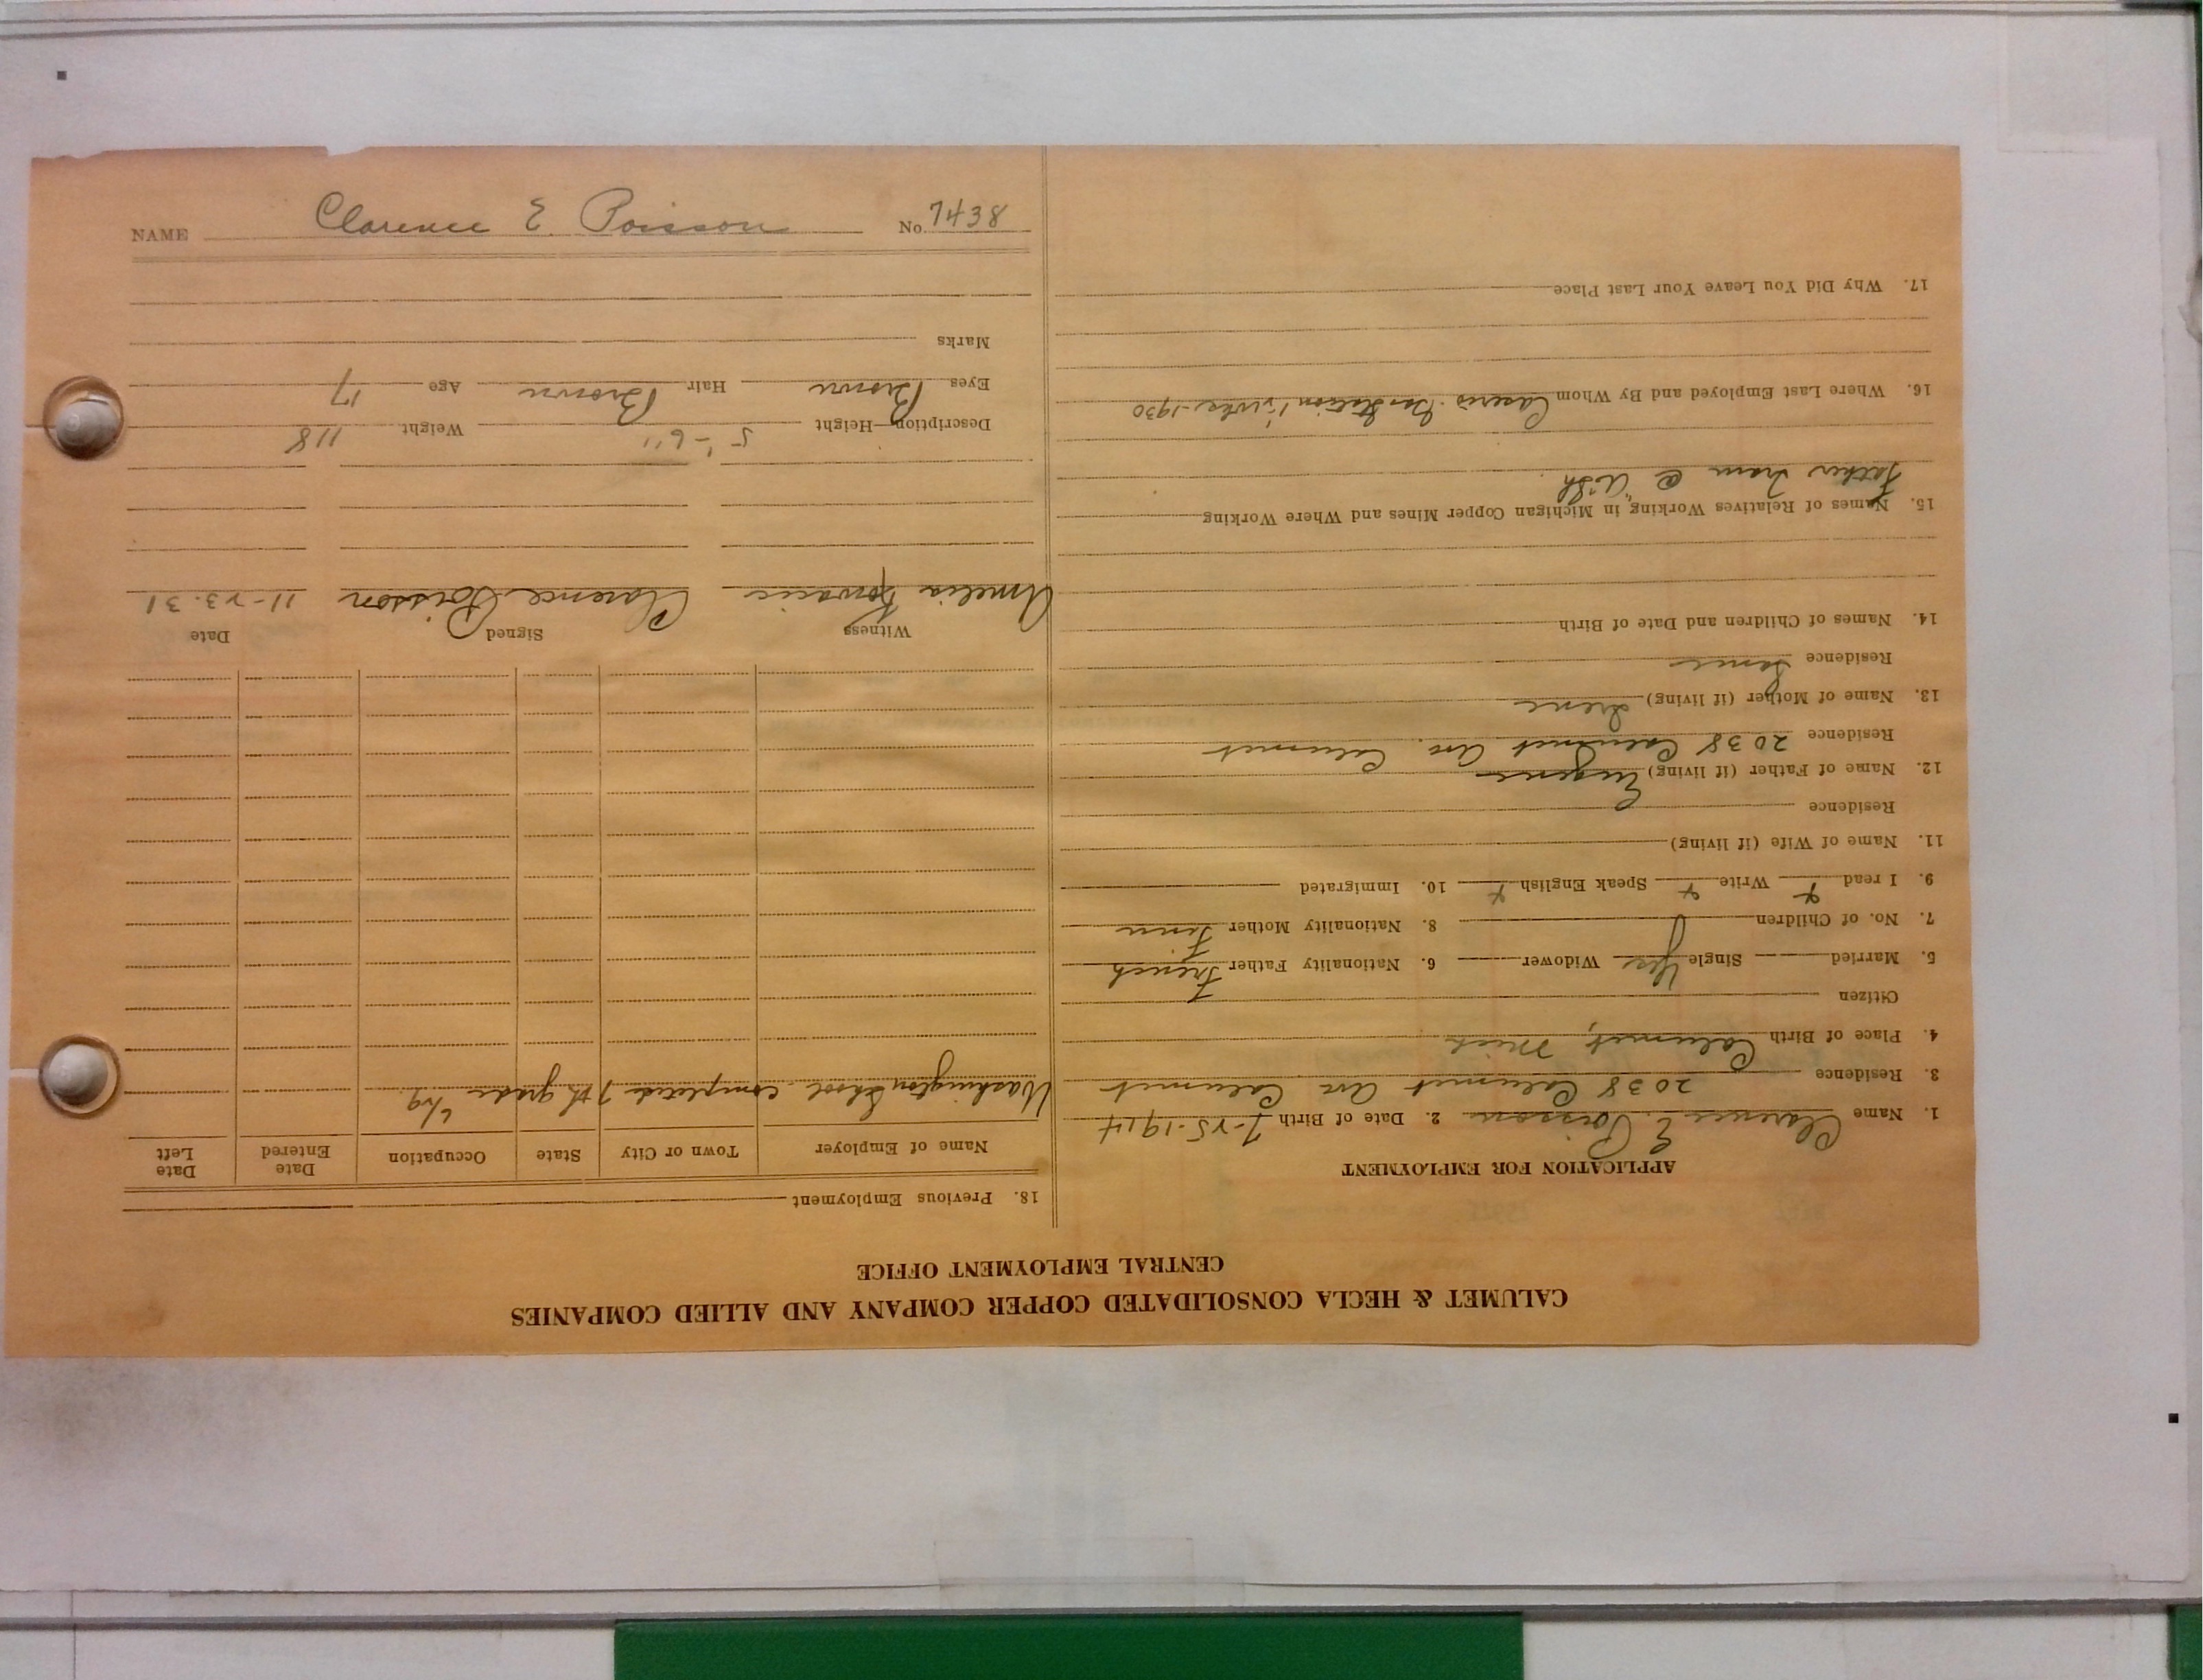 CALUMET & HECLA CONSOLIDATED COPPER COMPANY AND ALLIED COMPANIES
CENTRAL EMPLOYMENT OFFICE
APPLICATION FOR EMPLOYMENT
1. Name Clarence E. Poisson 2. Date of Birth 7-25-1914
3. Residence 2038 Calumet Ave Calumet
4. Place of Birth Calumet, Mich
Citizen
5. Married Single Yes Widower 6. Nationality Father French
7. No. of Children 8. Nationality Mother Finn
9. I read Write Speak English 10. Immigrated
11. Name of Wife (if living)
Residence
12. Name of Father (if living) Eugene
Residence 2038 Calumet Ave. Calumet
13. Name of Mother (if living) Irene
Residence Same
14. Names of Children and Date of Birth
15. Names of Relatives Working in Michigan Copper Mines and Where Working
Father Tram @
16. Where Last Employed and By Whom Gas Station 1930
17. Why Did You Leave Your Last Place
18. Previous Employment
Name of Employer Town or City State Occupation Date Entered Date Left
Washington School completed 7th grade
Witness Signed Date
Amelia Clarence Poisson 11-23-31
Description—Height 5'-6" Weight 118
Eyes Brown Hair Brown Age 17
Marks
NAME Clarence E. Poisson No. 7438